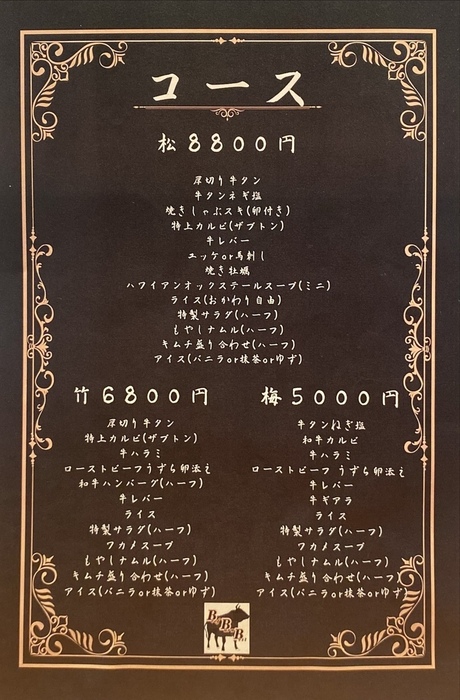 コース
松8800円
厚切り牛タン
牛タンネギ塩
焼きしゃぶスキ(卵付き)
特上カルビ(ザブトン)
牛レバー
ユッケor馬刺し
焼き牡蠣
ハワイアンオックステールスープ(ミニ)
ライス(おかわり自由)
特製サラダ(ハーフ)
もやしナムル(ハーフ)
キムチ盛り合わせ(ハーフ)
アイス(バニラor抹茶orゆず)
竹6800円
厚切り牛タン
特上カルビ(ザブトン)
牛ハラミ
ローストビーフうずら卵添え
和牛ハンバーグ(ハーフ)
牛レバー
ライス
特製サラダ(ハーフ)
ワカメスープ
もやしナムル(ハーフ)
キムチ盛り合わせ(ハーフ)
アイス(バニラor抹茶orゆず)
梅5000円
牛タンねぎ塩
和牛カルビ
牛ハラミ
ローストビーフ うずら卵添え
牛レバー
牛ギアラ
ライス
特製サラダ(ハーフ)
ワカメスープ
もやしナムル(ハーフ)
キムチ盛り合わせ(ハーフ)
アイス(バニラor抹茶orゆず)